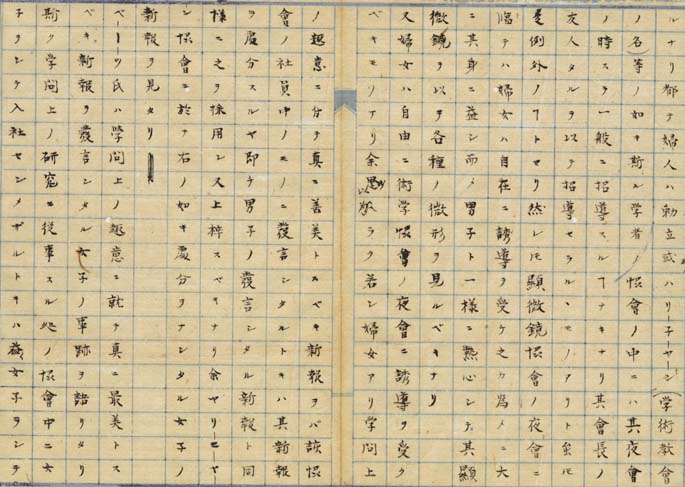 ルナリ都テ婦人ハ勅立或ハリー子ーヤーン(学術教會
ノ名)等ノ如キ斯ル学者ノ懷會ノ中ニハ其夜會
ノ時スラ一般ニ招導スルヿナキナリ其會長ノ
友人タルヲ以テ招導セラルヽモノアリト虽モ
是例外ノヿトセリ然レモ顯微鏡懷會ノ夜會ニ
臨テハ婦女ハ自在ニ誘導ヲ受ケ之カ為メニ大
ニ其身ニ益シ而メ男子ト一様ニ熱心シテ其顯
微鏡ヲ以テ各種ノ微形ヲ見ルベキナリ
又婦女ハ自由ニ術学懷會ノ夜會ニ誘導ヲ受ク
ベキモリアリ余思ヘラク若シ婦女アリ学問上
ノ趣意ニ分テ真ニ善美トスベキ新報ヲバ該懷
會ノ社員中ノモノニ發言シタルトキハ其新報
ヲ處分スルヤ即チ男子ノ發言シタル新報ト同
様ニ之ヲ採用シ又上梓スベキナリ余ヤリニヤー
ン懷會ニ於テ右ノ如キ處分ヲナシタル女子ノ
新報ヲ見タリ
ベーツ氏ハ学問上ノ趣意ニ就テ真ニ最美トス
ベキ新報ヲ發言シタル女子ノ事跡ヲ語リタリ
斯ク学問上ノ研究ニ從事スル処ノ懷會中ニ女
子ヲシテ入社セシメザルトキハ益女子ヲシテ